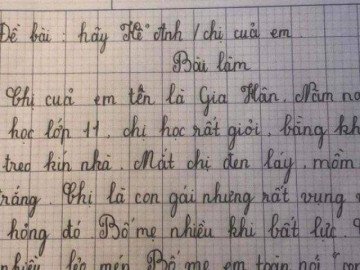 Đề bài : hãy Tả Anh / chị cuả em
Bài làm
Chị cuả em tên là Gia Hân. Năm na
học lớp 11. chị học rất giỏi, bằng kh
treo kín nhà. Mắt chị đen láy, mồm
trắng. Chị là con gái nhưng rất vụng v
hỏng đó Bố mẹ nhiều khi bất lực.
Bố mẹ em toàn nói